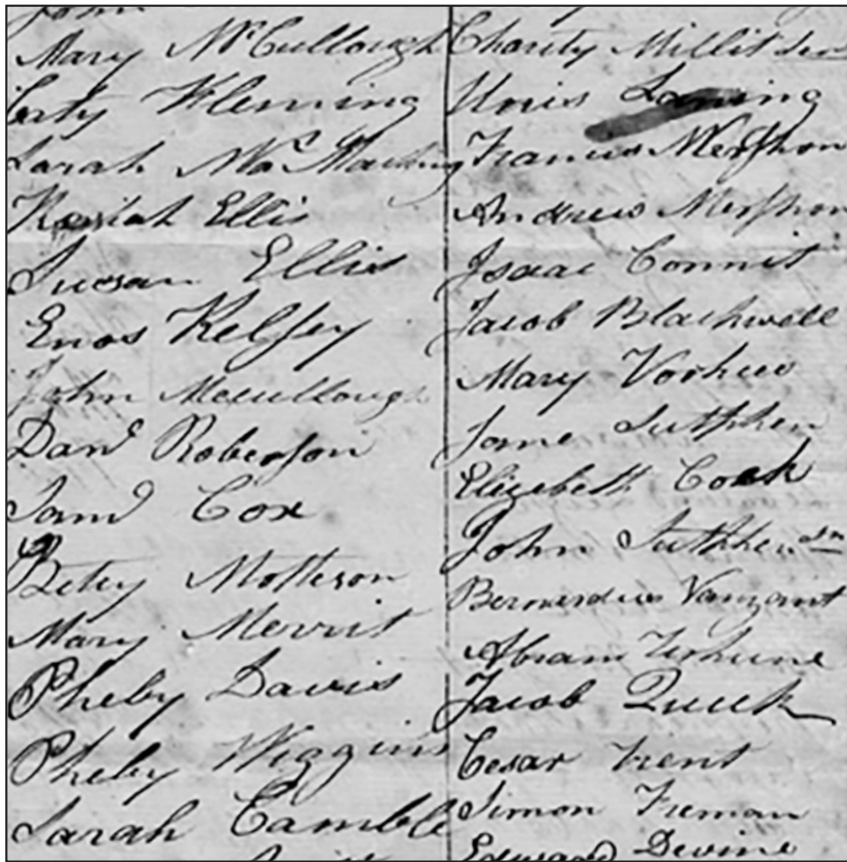 John
Mary McCullough
Caty Fleming
Sarah
Keziah Ellis
Susan Ellis
Enos Kelsey
John Mccullough
Danl Roberson
Saml Cox
Betey Motteson
Mary Merrit
Pheby Davis
Pheby Wiggins
Sarah Camble
Charity Millit Sen
Unis Laning
Francis Mershon
Andrew Mershon
Isaac Connit
Jacob Blackwell
Mary Vorhies
Jane Sutphen
Elizebeth Cook
John Sutphen
Bernardus Vanzant
Abram Terhune
Jacob Quick
Cesar Trent
Simon Freman
Edward Devine